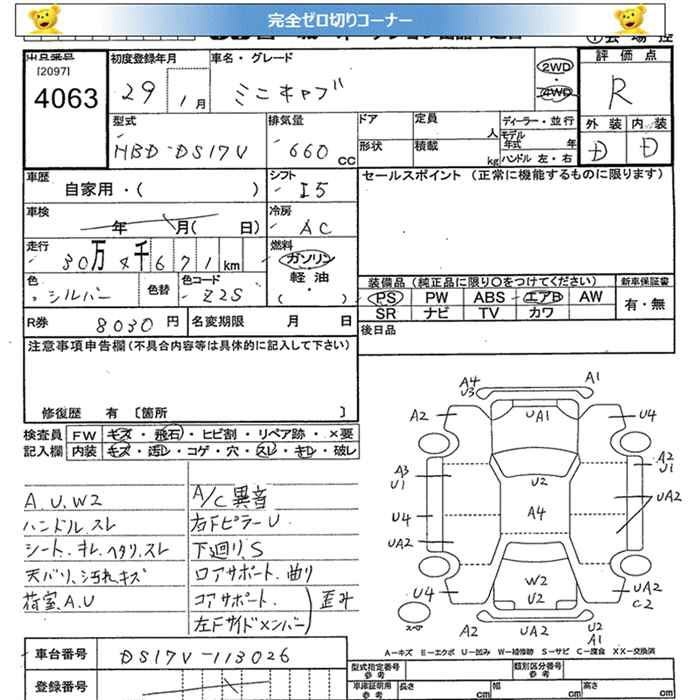 完全ゼロ切りコーナー
出品番号
[2097]
4063
初度登録年月
29 1月
車名・グレード
ミニキャブ
2WD
4WD
評価点
R
型式
HBD-DS17V
排気量
660 CC
ドア
形状
定員 人
積載 kg
ディーラー・並行
モデル年式 年
ハンドル 左・右
外装 内装
D D
車歴
自家用・( )
シフト
I5
セールスポイント (正常に機能するものに限ります)
車検
年 月( 日)
冷房
AC
走行
30万 千671 km
燃料
ガソリン
軽油
・
( )
色
シルバー
色替
色コード
Z2S
装備品 (純正品に限り○をつけてください)
新車保証書
PS PW ABS エアB AW
有・無
SR ナビ TV カワ
R券 8030円
名変期限 月 日
後日品
注意事項申告欄 (不具合内容等は具体的に記入して下さい)
修復歴 有 〔箇所 〕
検査員 FW キズ・飛石・ヒビ割・リペア跡・×要
記入欄 内装 キズ・汚レ・コゲ・穴・スレ・キレ・破レ
A4
U3
A1
A2
UA1
U4
A3
U1
U2
A2
U1
U4
A4
UA2
UA2
U4
W2
U2
UA2
C2
スペア
A2
UA2
U2
A1
A.U.W2
ハンドル スレ
シート.キレ.ヘタリ.スレ
天バリ.汚れキズ
荷室.A.U
A/C異音
右Fピラー U
下廻り.S
ロアサポート.曲り
コアサポート.
左Fサイドメンバー) 歪み
A=キズ E=エクボ U=凹み W=補修跡 S=サビ C=腐食 XX=交換済
車台番号 DS17V-113026
登録番号
型式指定番号 参考
類別区分番号 参考
車庫証明用 参考
長さ cm
幅 cm
高さ cm